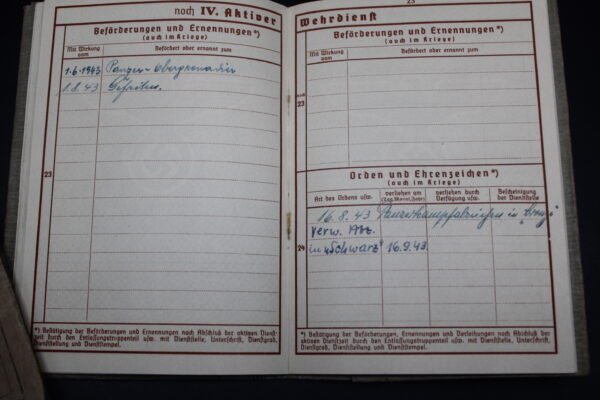 noch IV. Aktiver
Beförderungen und Ernennungen*)
(auch im Kriege)
Mit Wirkung vom
Befördert oder ernannt zum
1.6.1943 Panzer-Obergrenadier
1.8.43 Gefreiten.
23
*) Bestätigung der Beförderungen und Ernennungen nach Abschluß der aktiven Dienst-
zeit durch den Entlassungstruppenteil usw. mit Dienststelle, Unterschrift, Dienstgrad,
Dienststellung und Dienststempel.
23
Wehrdienst
Beförderungen und Ernennungen*)
(auch im Kriege)
Mit Wirkung vom
Befördert oder ernannt zum
noch
23
Orden und Ehrenzeichen*)
(auch im Kriege)
Art des Ordens usw.
verliehen am
(Tag, Monat, Jahr)
verliehen durch
Verfügung usw.
Bescheinigung
der Dienststelle
16.8.43 Panzerkampfabzeichen in
Verw. Abz.
in „Schwarz" 16.9.43
24
*) Bestätigung der Beförderungen, Ernennungen und Verleihungen nach Abschluß der
aktiven Dienstzeit durch den Entlassungstruppenteil usw. mit Dienststelle, Unterschrift,
Dienstgrad, Dienststellung und Dienststempel.